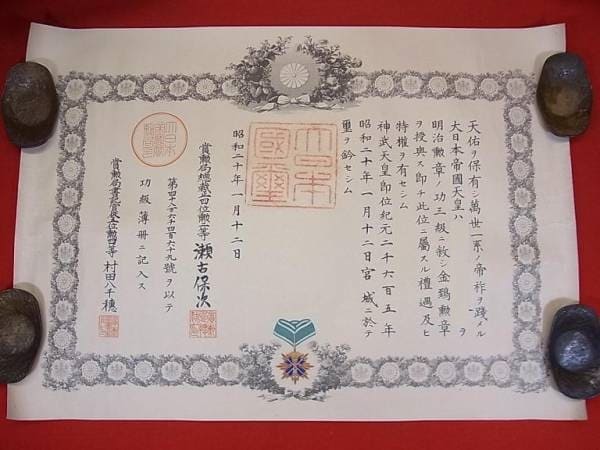 天佑ヲ保有シ萬世一系ノ帝祚ヲ踐メル
大日本帝國天皇ハ ヲ
明治勲章ノ功三級ニ敍シ金鵄勲章
ヲ授與ス即チ此位ニ屬スル禮遇及ヒ
特權ヲ有セシム
神武天皇即位紀元二千六百五年
昭和二十年一月十二日宮城ニ於テ
璽ヲ鈐セシム
大日本
國璽
昭和二十年一月十二日
賞勲局總裁正四位勲二等 瀬古保次
第四十八万六千四百六十九號ヲ以テ
功級簿册ニ記入ス
賞勲局書記官從五位勲四等 村田八千穗